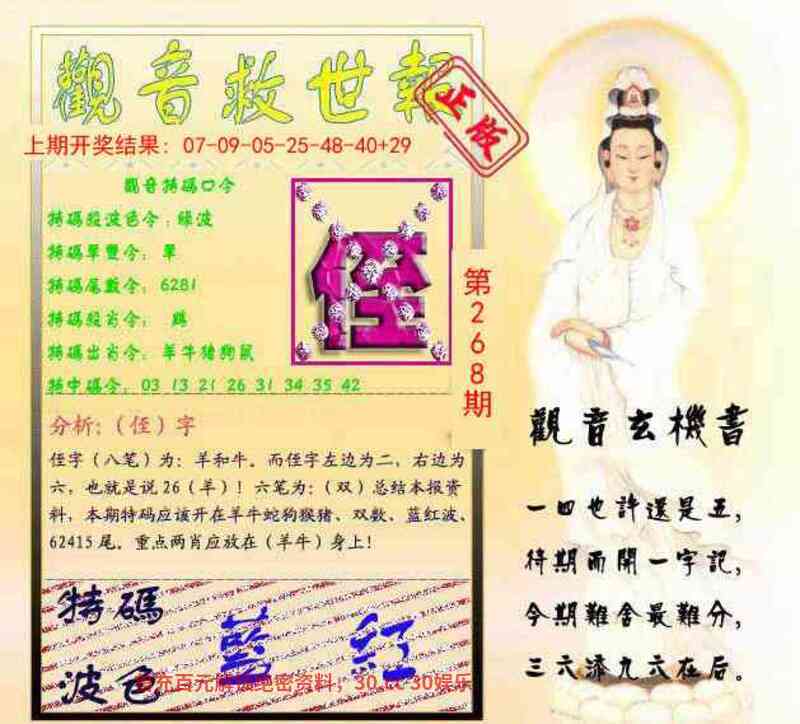 觀音救世報
正版
上期开奖结果：07-09-05-25-48-40+29
觀音特碼口令
特碼殺波色令：绿波
特碼單雙令：單
特碼尾數令：6281
特碼殺肖令：鷄
特碼出肖令：羊牛猪狗鼠
特中碼令：03 13 21 26 31 34 35 42
侄
第268期
分析：（侄）字
侄字（八笔）为：羊和牛。而侄字左边为二，右边为
六，也就是说26（羊）！六笔为：（双）总结本报资
料，本期特码应该开在羊牛蛇狗猴猪、双数、蓝红波、
62415尾。重点两肖应放在（羊牛）身上！
特碼
波色
藍 紅
充百元解 绝密资料；30.cc 30娱乐
觀音玄機書
一四也許還是五，
待期而開一字記，
今期難舍最難分，
三六添九六在后。